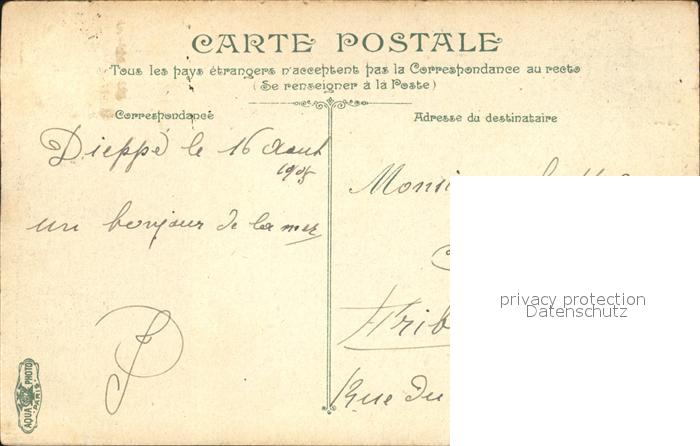 CARTE POSTALE
Tous les pays étrangers n'acceptent pas la Correspondance au recto
(Se renseigner à la Poste)
Correspondance
Dieppe le 16 Aout
1905
un bonjour de la mer
Adresse du destinataire
Frib
Rue du
privacy protection
Datenschutz
AQUA PHOTO
PARIS